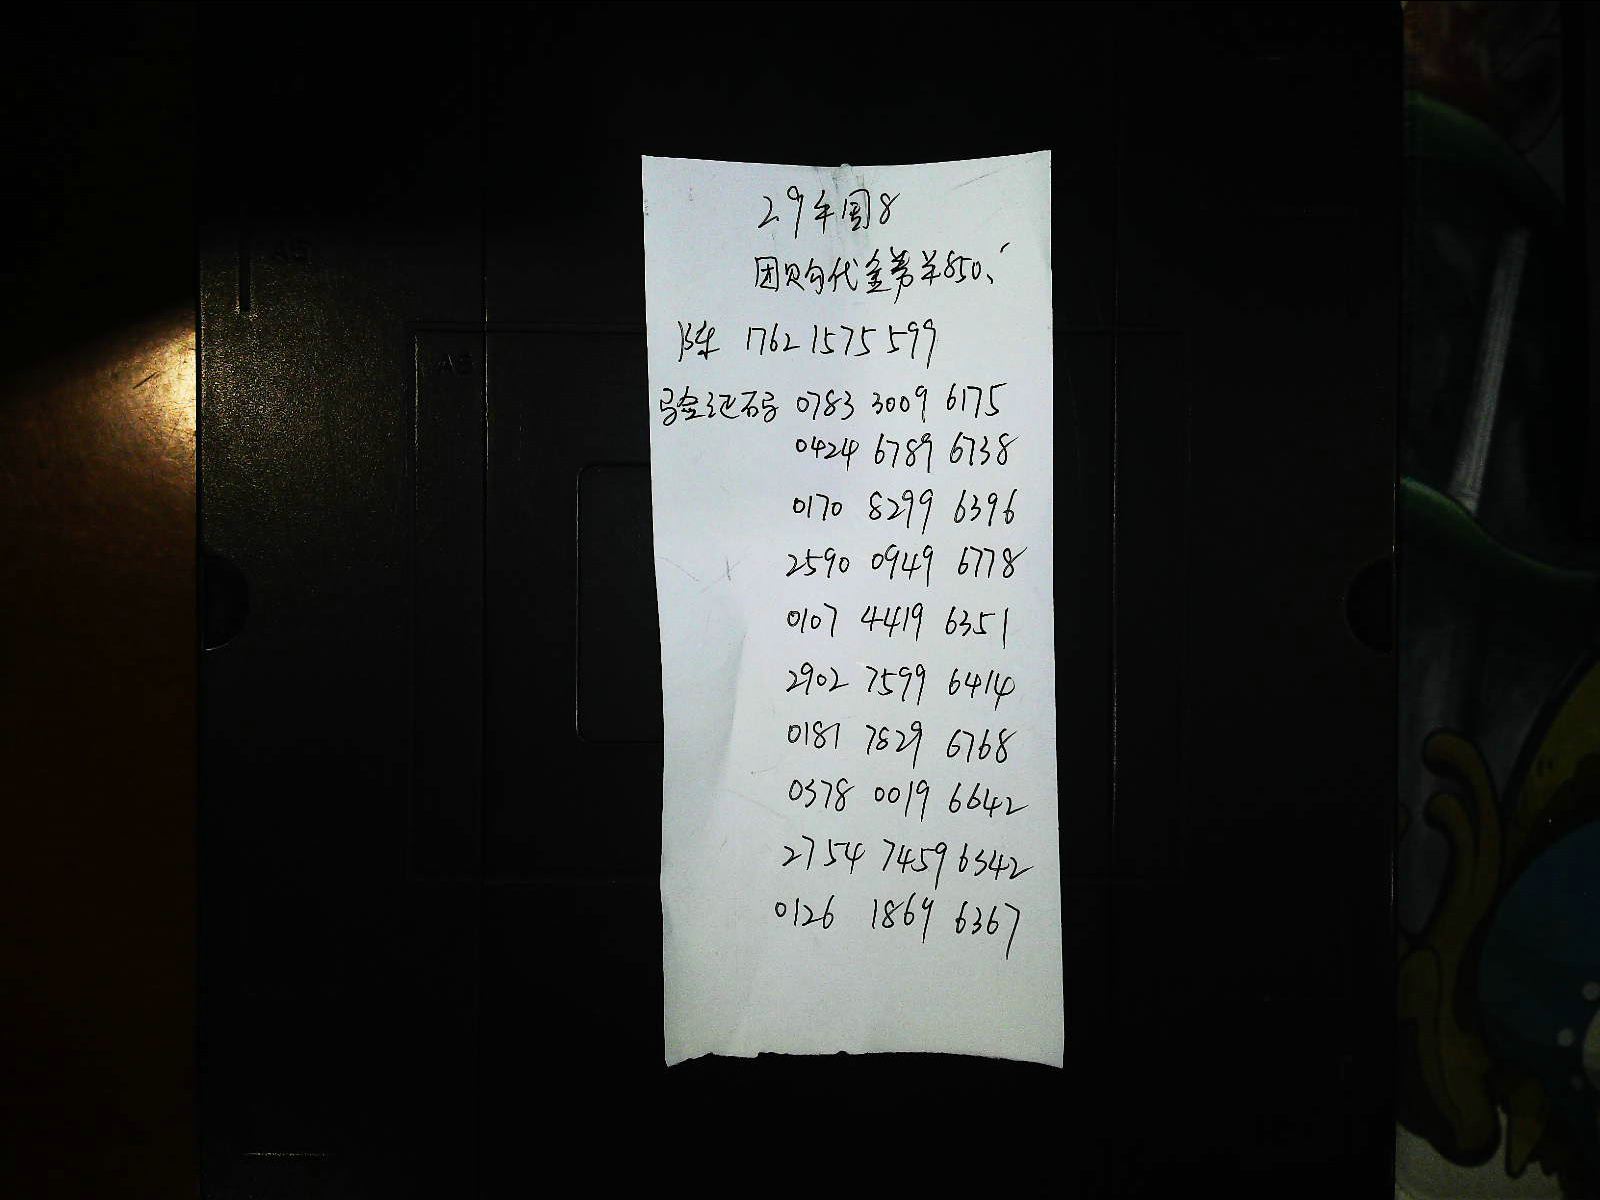 29午周8
团购代金券羊850、
陈 17621575599
验证码 0783 3009 6175
0424 6789 6738
0170 8299 6396
2590 0949 6778
0107 4419 6351
2902 7599 6414
0181 7829 6768
0378 0019 6642
2754 7459 6342
0126 1869 6367